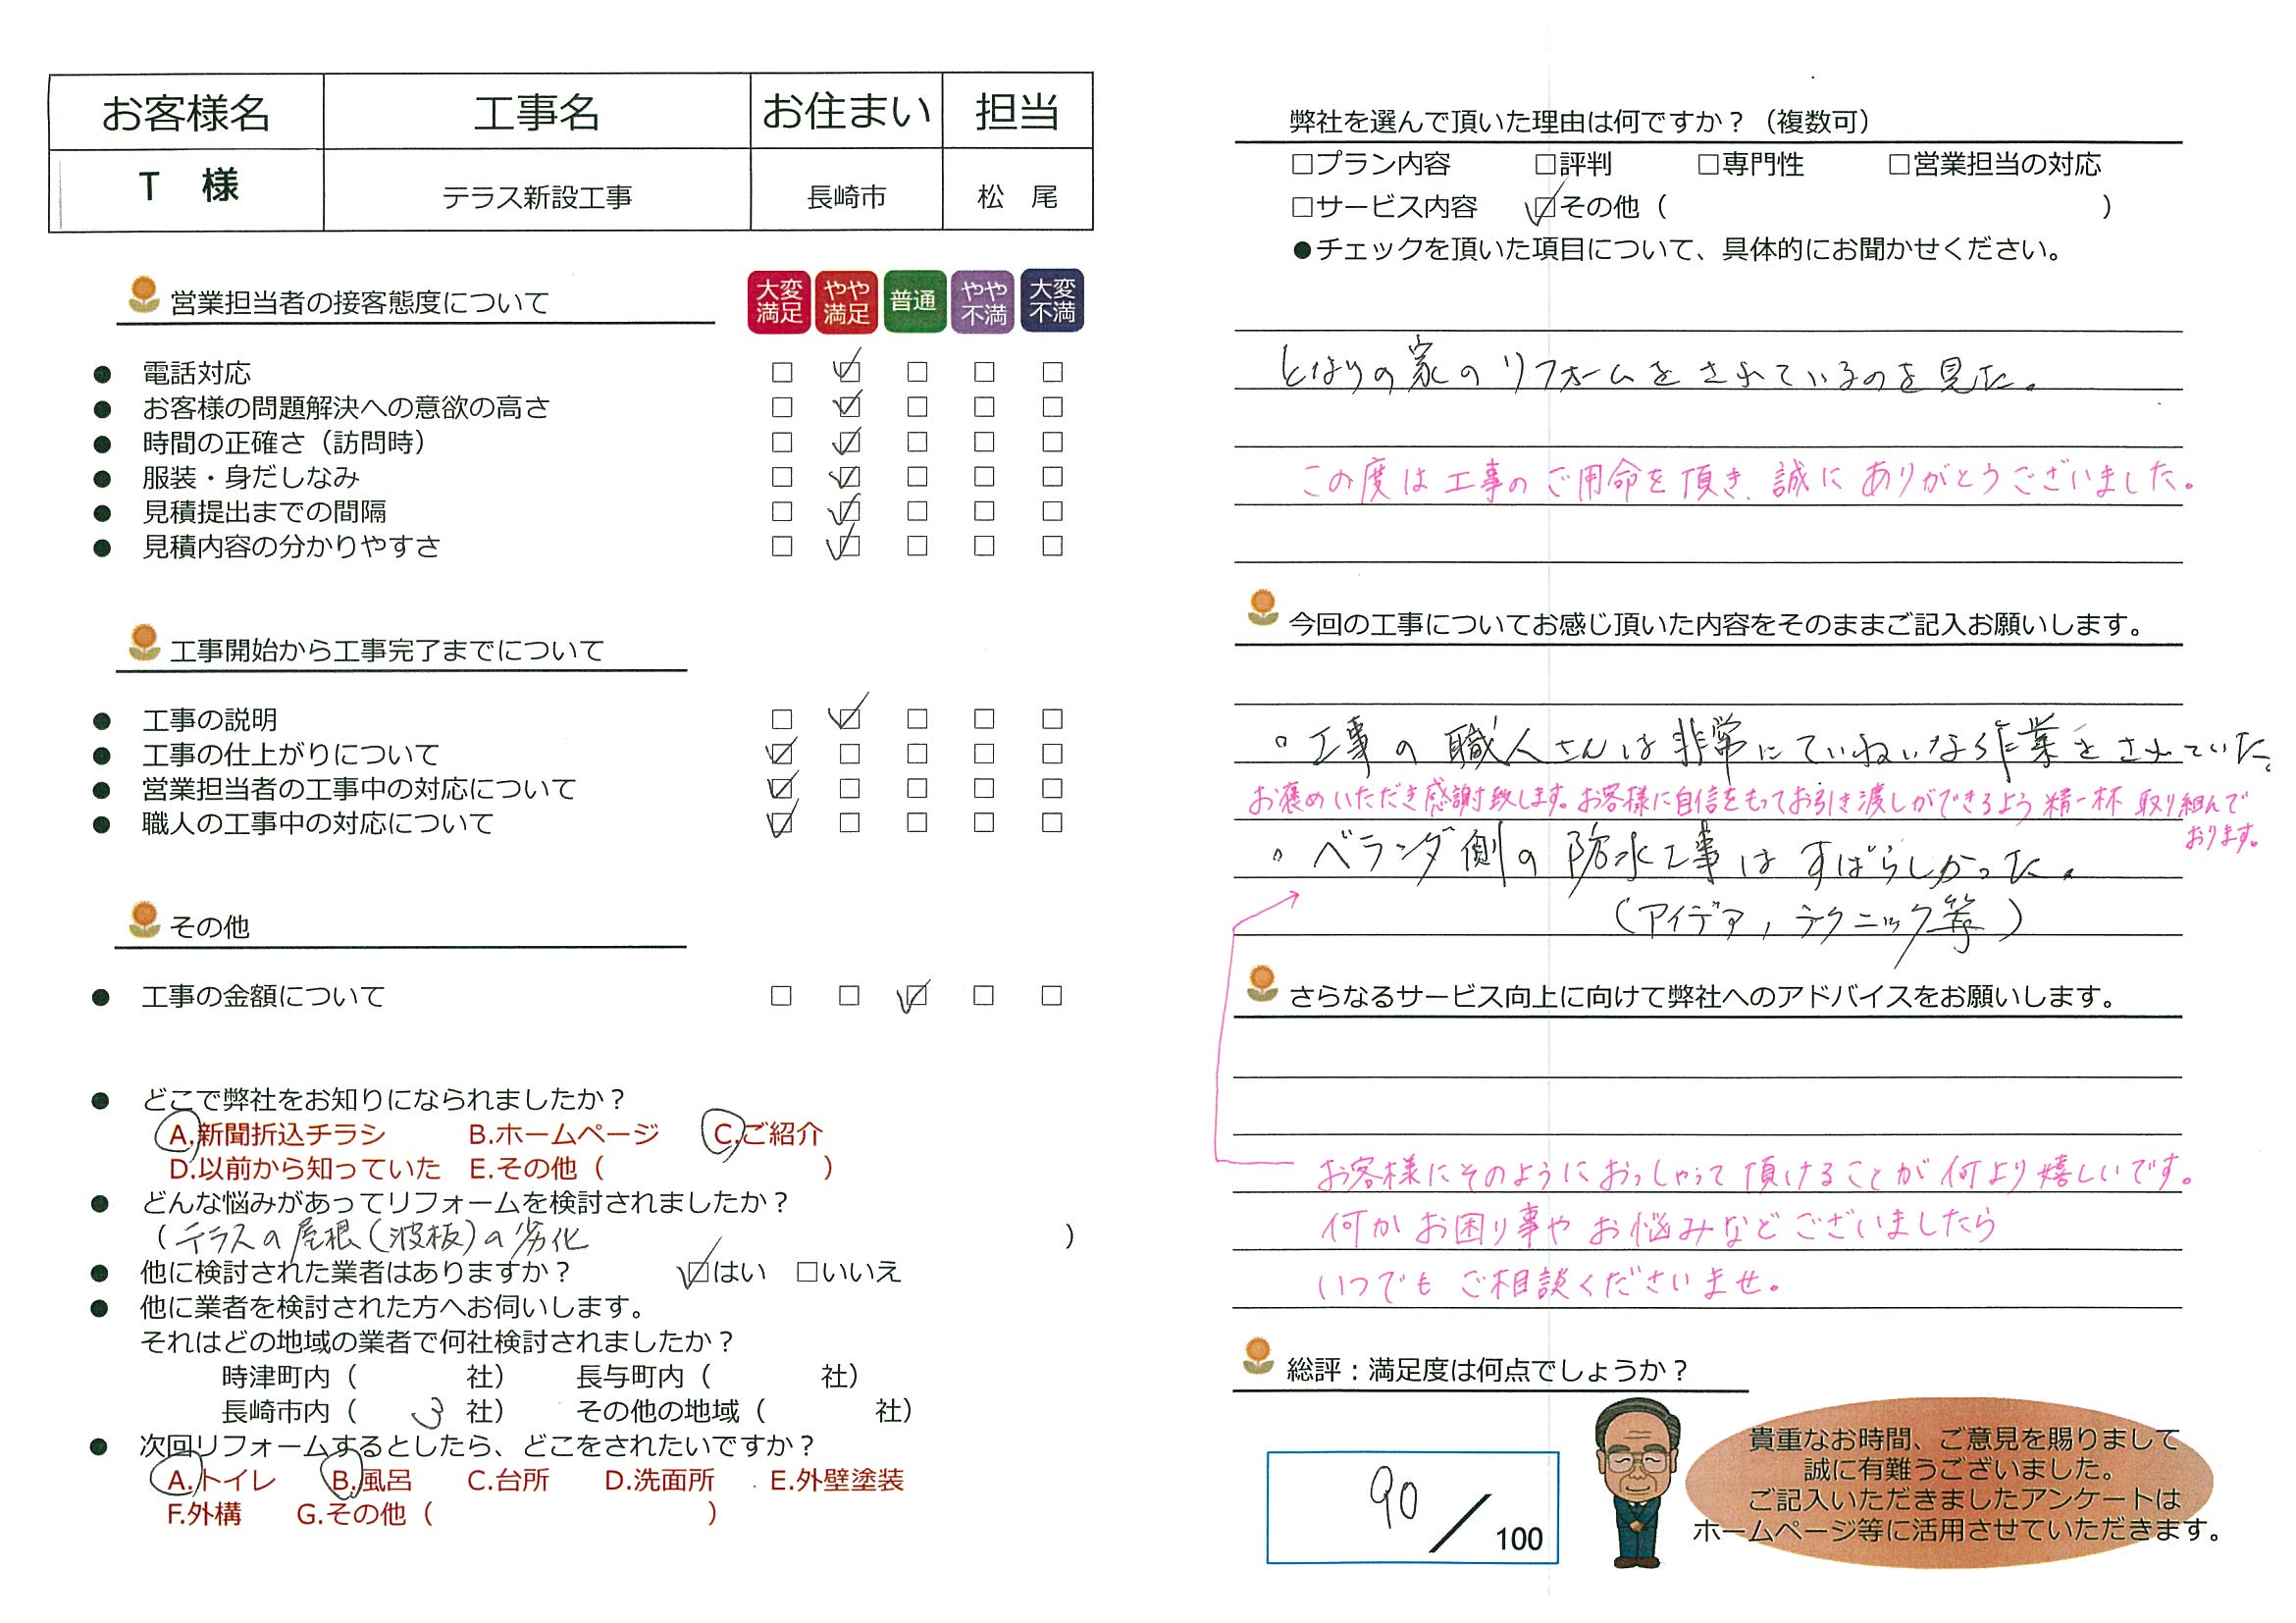 お客様名 工事名 お住まい 担当
T 様 テラス新設工事 長崎市 松 尾
営業担当者の接客態度について
大変満足 やや満足 普通 やや不満 大変不満
● 電話対応 □ ☑ □ □ □
● お客様の問題解決への意欲の高さ □ ☑ □ □ □
● 時間の正確さ（訪問時） □ ☑ □ □ □
● 服装・身だしなみ □ ☑ □ □ □
● 見積提出までの間隔 □ ☑ □ □ □
● 見積内容の分かりやすさ □ ☑ □ □ □
工事開始から工事完了までについて
● 工事の説明 □ ☑ □ □ □
● 工事の仕上がりについて ☑ □ □ □ □
● 営業担当者の工事中の対応について ☑ □ □ □ □
● 職人の工事中の対応について ☑ □ □ □ □
その他
● 工事の金額について □ □ ☑ □ □
● どこで弊社をお知りになられましたか？
A.新聞折込チラシ B.ホームページ C.ご紹介
D.以前から知っていた E.その他（ ）
● どんな悩みがあってリフォームを検討されましたか？
（テラスの屋根（波板）の劣化 ）
● 他に検討された業者はありますか？ ☑はい □いいえ
● 他に業者を検討された方へお伺いします。
それはどの地域の業者で何社検討されましたか？
時津町内（ 社） 長与町内（ 社）
長崎市内（ 3 社） その他の地域（ 社）
● 次回リフォームするとしたら、どこをされたいですか？
A.トイレ B.風呂 C.台所 D.洗面所 E.外壁塗装
F.外構 G.その他（ ）
弊社を選んで頂いた理由は何ですか？（複数可）
□プラン内容 □評判 □専門性 □営業担当の対応
□サービス内容 ☑その他（ ）
●チェックを頂いた項目について、具体的にお聞かせください。
となりの家のリフォームをされているのを見た。
この度は工事のご用命を頂き、誠にありがとうございました。
今回の工事についてお感じ頂いた内容をそのままご記入お願いします。
。工事の職人さんは非常にていねいな作業をされていた。
お褒めいただき感謝致します。お客様に自信をもってお引き渡しができるよう精一杯取り組んで
おります。
。ベランダ側の防水工事はすばらしかった。
（アイデア，テクニック等）
さらなるサービス向上に向けて弊社へのアドバイスをお願いします。
お客様にそのようにおっしゃって頂けることが何より嬉しいです。
何かお困り事やお悩みなどございましたら
いつでもご相談くださいませ。
総評：満足度は何点でしょうか？
90／100
貴重なお時間、ご意見を賜りまして
誠に有難うございました。
ご記入いただきましたアンケートは
ホームページ等に活用させていただきます。